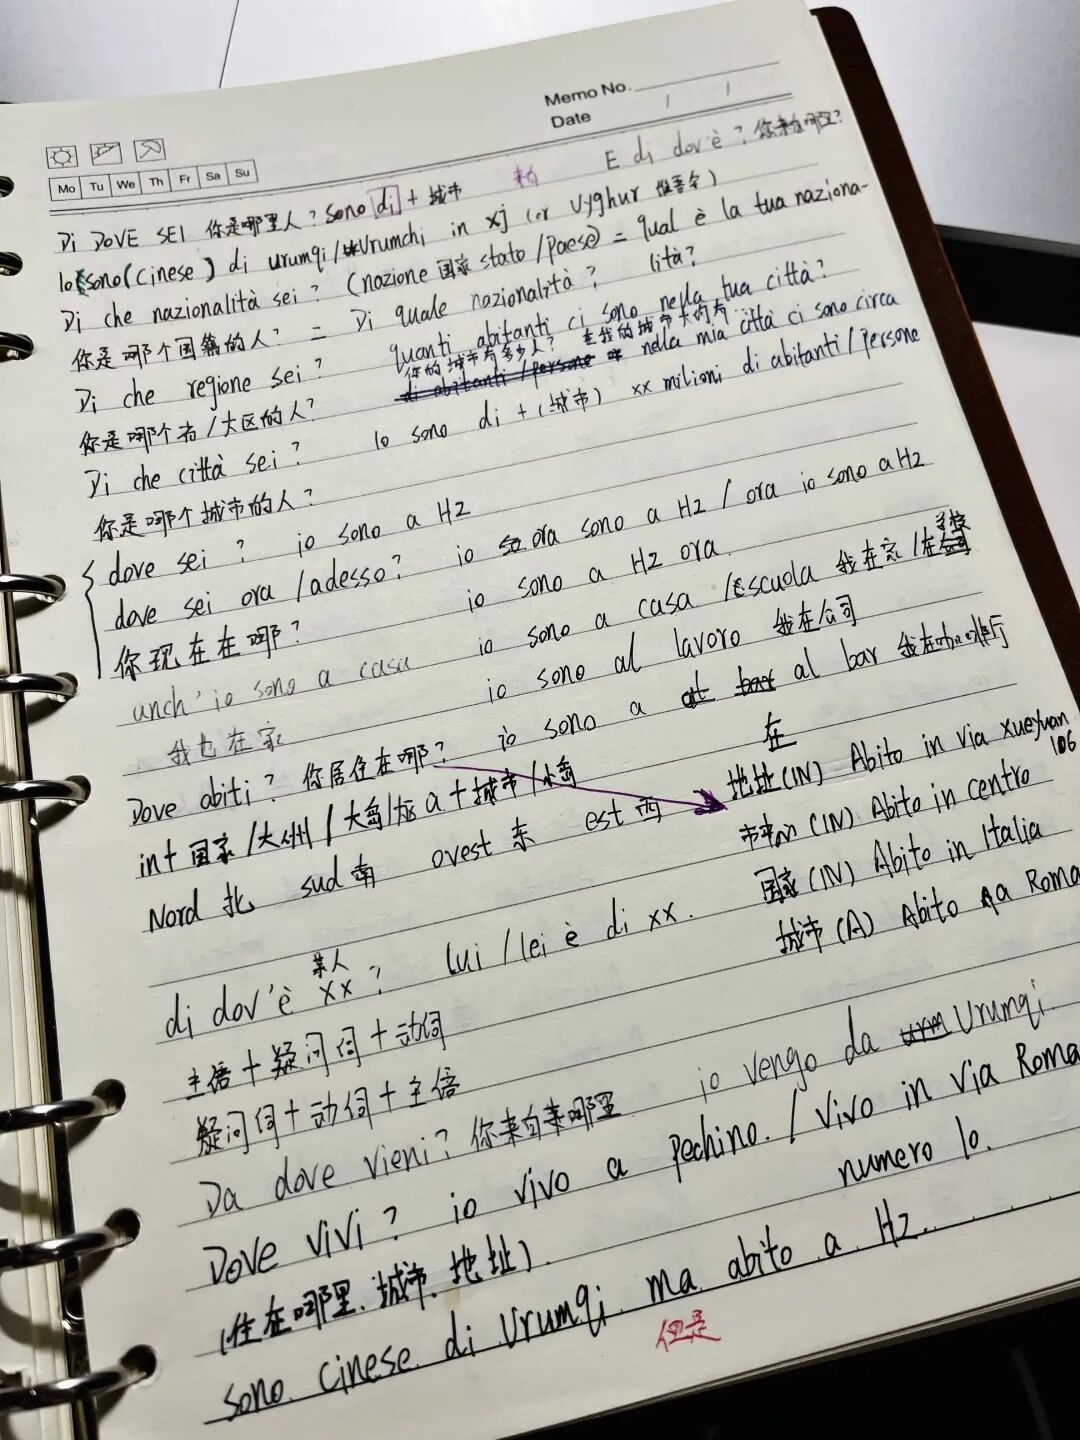 Memo No.
Date / /
Mo Tu We Th Fr Sa Su
E di dov'è? 你来自哪里?
Di DOVE SEI 你是哪里人? sono di + 城市
Io sono (cinese) di urumqi/Urumchi in XJ (or Uyghur 维吾尔)
Di che nazionalità sei? (nazione 国家 stato/paese) = qual è la tua naziona-
lità?
你是哪个国籍的人? = Di quale nazionalità?
quanti abitanti ci sono nella tua città?
你的城市有多少人? 在我的城市大约有...
Di che regione sei? di abitanti/persone nella mia città ci sono circa
你是哪个省/大区的人? xx milioni di abitanti/persone
Di che città sei? Io sono di + (城市)
你是哪个城市的人?
dove sei? io sono a HZ
dove sei ora/adesso? io ora sono a HZ/ora io sono a HZ
你现在在哪? io sono a HZ ora.
anch'io sono a casa io sono a casa/scuola 我在家/在学校
我也在家 io sono al lavoro 我在公司
io sono a al bar 我在咖啡厅
Dove abiti? 你居住在哪?
在
地址(IN) Abito in via xueyuan 106
in+国家/大州/大岛/大区 a+城市/小岛
市中心(IN) Abito in centro
Nord 北 sud 南 ovest 东 est 西
国家(IN) Abito in Italia
城市(A) Abito a Roma
某人
di dov'è xx? lui/lei è di xx.
主语+疑问词+动词
疑问词+动词+主语
Da dove vieni? 你来自来哪里 io vengo da Urumqi.
Dove vivi? io vivo a pechino./Vivo in via Roma
numero 10.
(住在哪里、城市、地址)
sono cinese di Urumqi ma abito a HZ.
但是